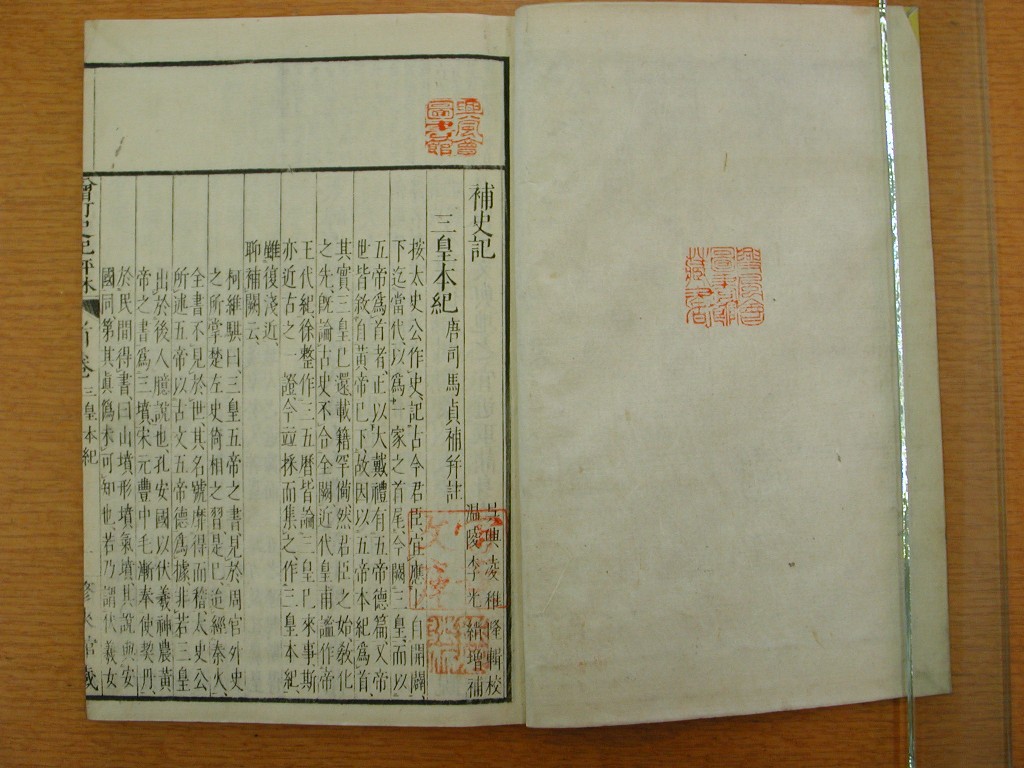 補史記
吳興凌稚隆輯校
溫陵李光縉增補
三皇本紀
唐司馬貞補并註
按太史公作史記古今君臣宜應上自開闢
下迄當代以爲一家之首尾今闕三皇而以
五帝爲首者正以大戴禮有五帝德篇又帝
世皆敘自黃帝已下故因以五帝本紀爲首
其實三皇已還載籍罕備然君臣之始敎化
之先旣論古史不合全闕近代皇甫謐作帝
王代紀徐整作三五曆皆論三皇已來事斯
亦近古之一證今竝採而集之作三皇本紀
雖復淺近
聊補闕云
柯維騏曰三皇五帝之書見於周官外史
之所掌楚左史倚相之習是已迨經秦火
全書不見於世其名號靡得而稽太史公
所述五帝以古文五帝德爲據非若三皇
出於後人臆說也孔安國以伏羲神農黃
帝之書爲三墳宋元豊中毛漸奉使契丹
於民間得書曰山墳形墳氣墳其說與安
國同第其眞僞未可知也若乃謂代羲女
增訂史記評本
首卷
三皇本紀
一
興風會圖書館
圖書